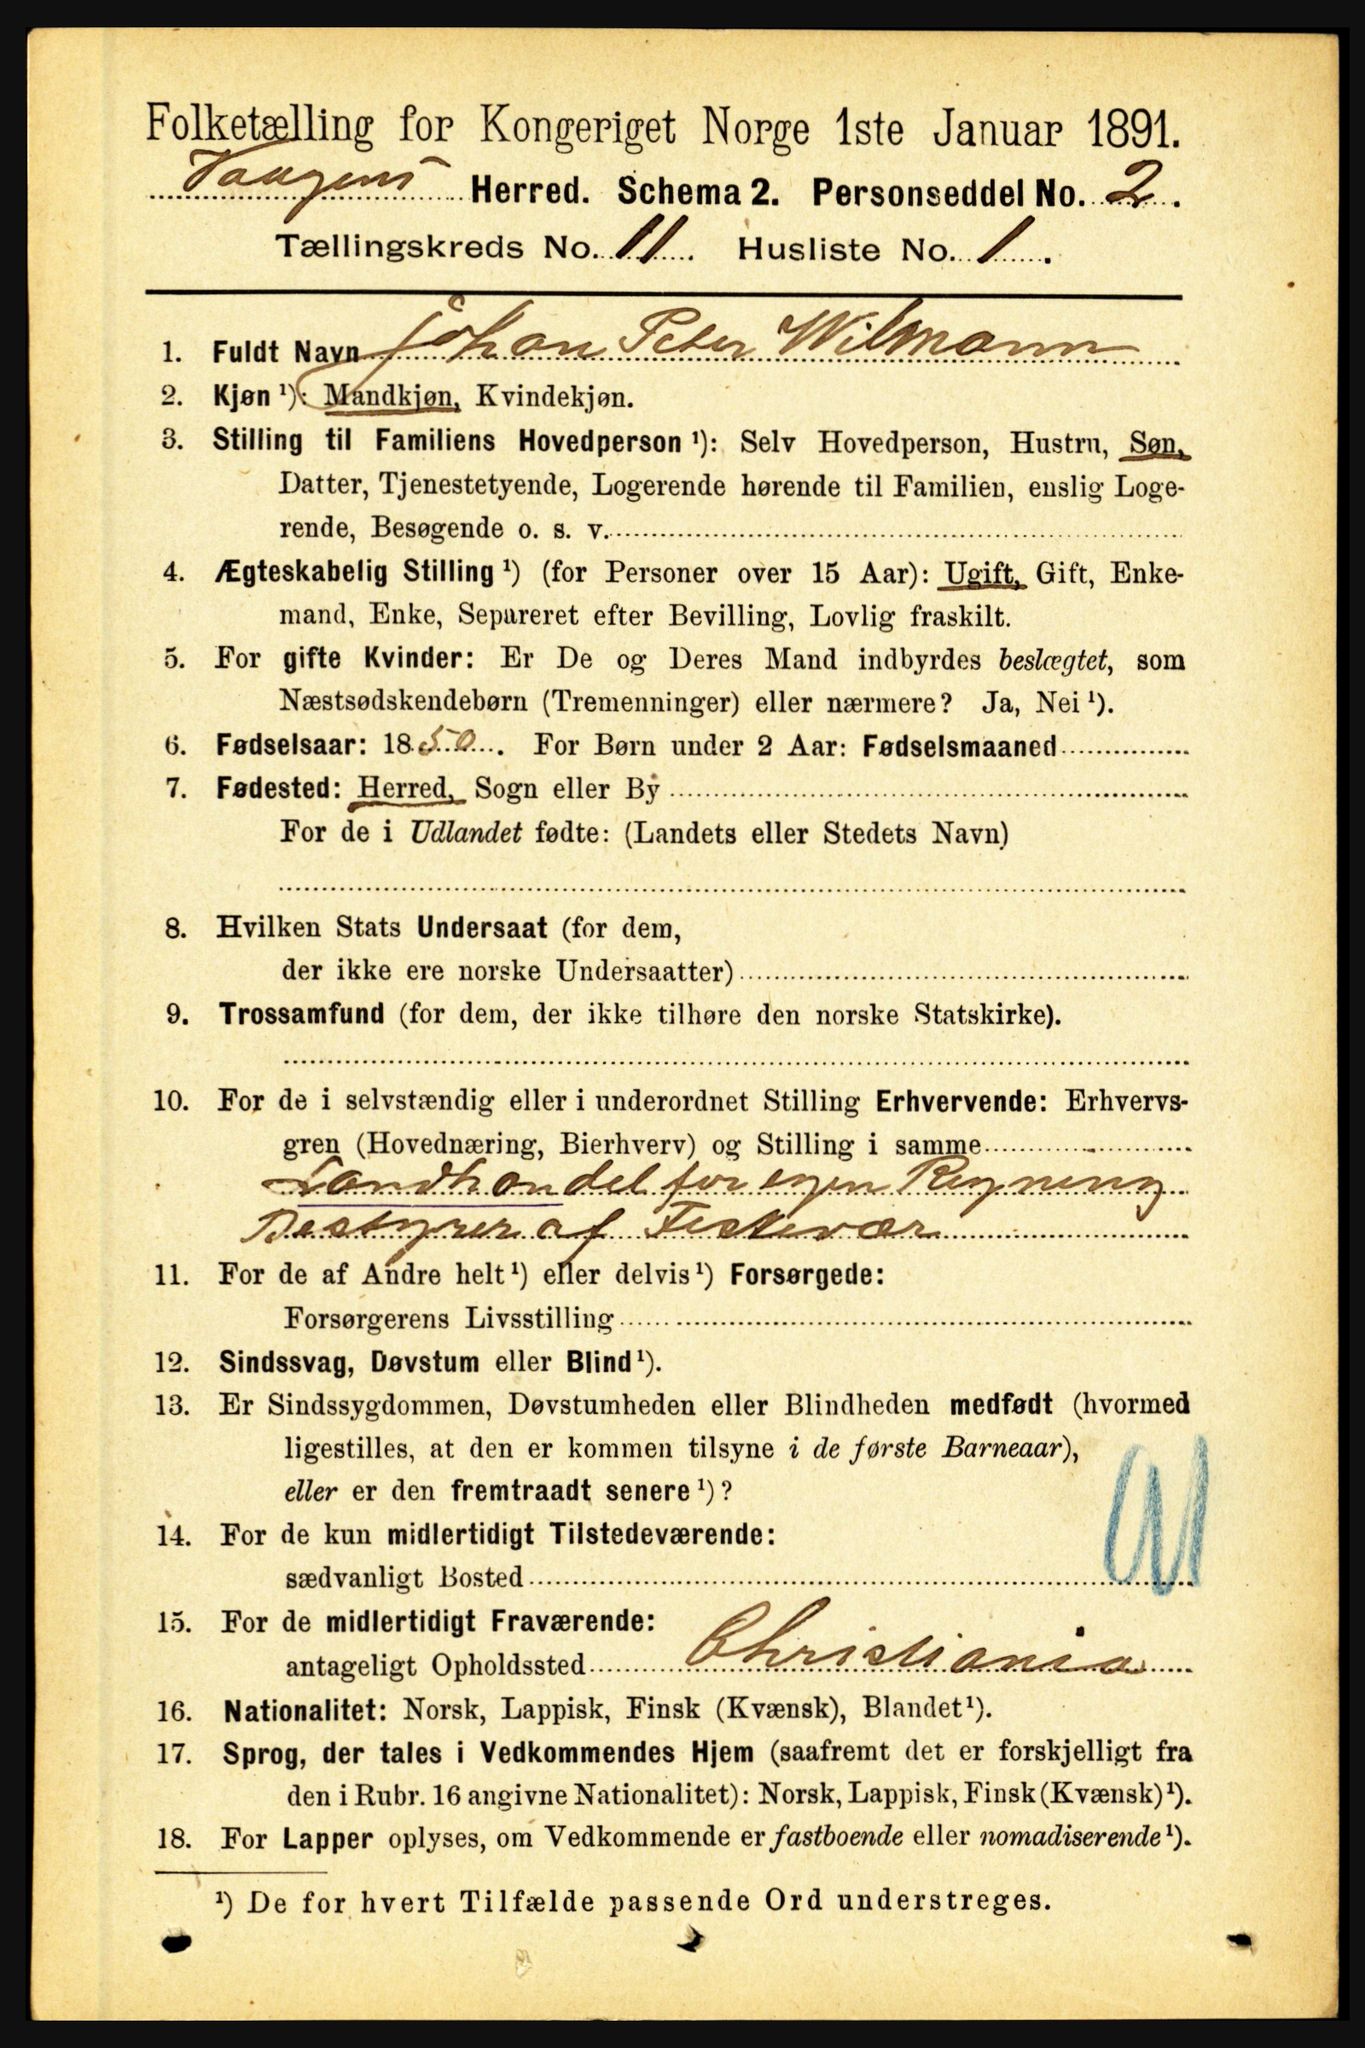 Folketælling for Kongeriget Norge 1ste Januar 1891.
Vaagens Herred. Schema 2. Personseddel No. 2.
Tællingskreds No. 11. Husliste No. 1.
1. Fuldt Navn Johan Peter Wilmann
2. Kjøn ¹): Mandkjøn, Kvindekjøn.
3. Stilling til Familiens Hovedperson ¹): Selv Hovedperson, Hustru, Søn,
Datter, Tjenestetyende, Logerende hørende til Familien, enslig Loge-
rende, Besøgende o. s. v.
4. Ægteskabelig Stilling ¹) (for Personer over 15 Aar): Ugift, Gift, Enke-
mand, Enke, Separeret efter Bevilling, Lovlig fraskilt.
5. For gifte Kvinder: Er De og Deres Mand indbyrdes beslægtet, som
Næstsødskendebørn (Tremenninger) eller nærmere? Ja, Nei ¹).
6. Fødselsaar: 1850. For Børn under 2 Aar: Fødselsmaaned
7. Fødested: Herred, Sogn eller By
For de i Udlandet fødte: (Landets eller Stedets Navn)
8. Hvilken Stats Undersaat (for dem,
der ikke ere norske Undersaatter)
9. Trossamfund (for dem, der ikke tilhøre den norske Statskirke).
10. For de i selvstændig eller i underordnet Stilling Erhvervende: Erhvervs-
gren (Hovednæring, Bierhverv) og Stilling i samme
Landhandel for egen Regning
Bestyrer af Fiskevær
11. For de af Andre helt ¹) eller delvis ¹) Forsørgede:
Forsørgerens Livsstilling
12. Sindssvag, Døvstum eller Blind ¹).
13. Er Sindssygdommen, Døvstumheden eller Blindheden medfødt (hvormed
ligestilles, at den er kommen tilsyne i de første Barneaar),
eller er den fremtraadt senere ¹)?
14. For de kun midlertidigt Tilstedeværende:
sædvanligt Bosted
15. For de midlertidigt Fraværende:
antageligt Opholdssted Christiania
16. Nationalitet: Norsk, Lappisk, Finsk (Kvænsk), Blandet ¹).
17. Sprog, der tales i Vedkommendes Hjem (saafremt det er forskjelligt fra
den i Rubr. 16 angivne Nationalitet): Norsk, Lappisk, Finsk (Kvænsk) ¹).
18. For Lapper oplyses, om Vedkommende er fastboende eller nomadiserende ¹).
¹) De for hvert Tilfælde passende Ord understreges.